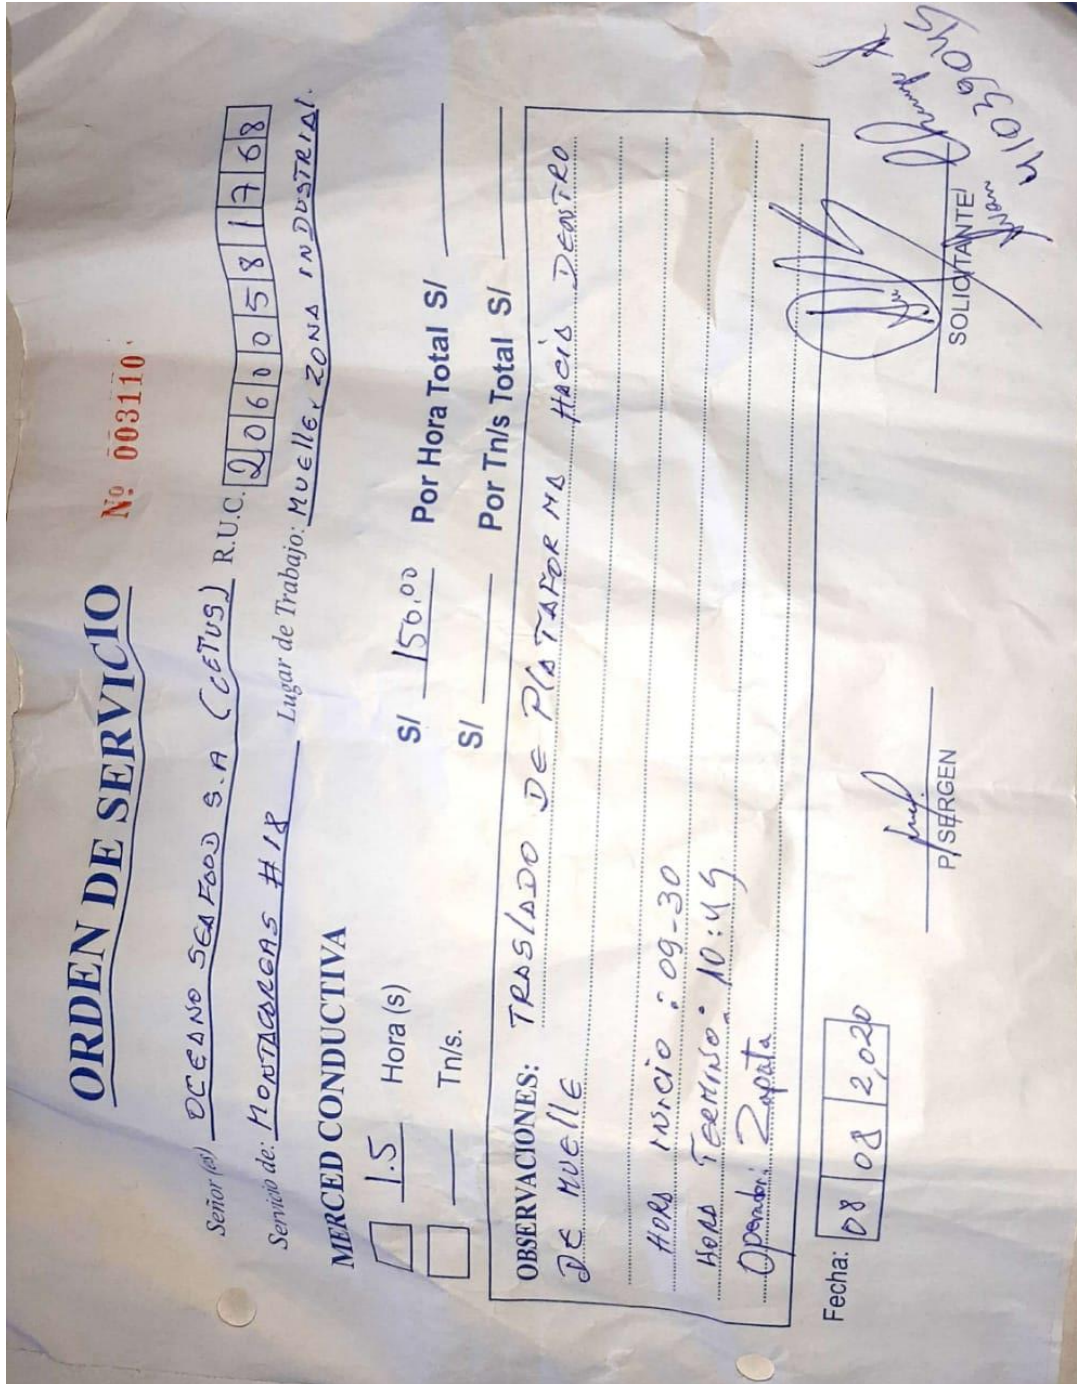 ORDEN DE SERVICIO
Nº 003110
Señor (es) OCEANO SEAFOOD S.A (CETUS) R.U.C. 20600581768
Servicio de: MONTACARGAS #18 Lugar de Trabajo: MUElle, ZONA INDUSTRIAL.
MERCED CONDUCTIVA
1.5 Hora (s) S/ 150.00 Por Hora Total S/
Tn/s. S/ Por Tn/s Total S/
OBSERVACIONES: TRASlADO DE PlATAFORMA HACIA DENTRO
DE MUElle
HORA INICIO : 09-30
HORA TERMINO: 10:45
Operador: Zapata
Fecha: 08 08 2,020
P/SERGEN
SOLICITANTE
Juan
41039045